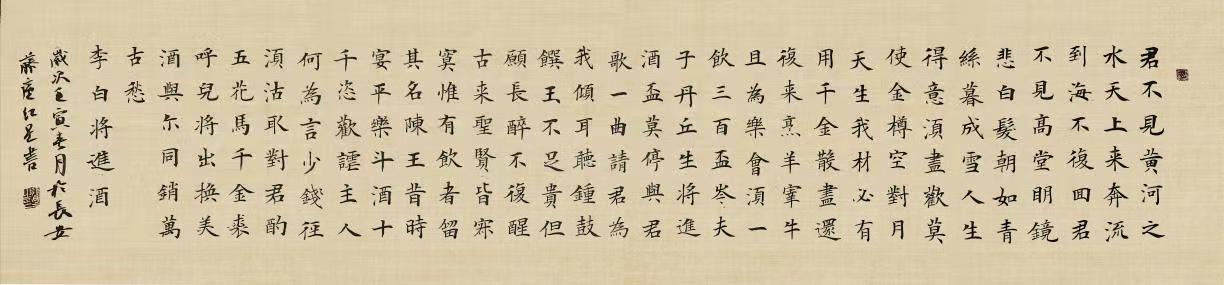 君不見黃河之
水天上来奔流
到海不復回君
不見高堂明鏡
悲白髮朝如青
絲暮成雪人生
得意須盡歡莫
使金樽空對月
天生我材必有
用千金散盡還
復来烹羊宰牛
且為樂會須一
飲三百盃岑夫
子丹丘生將進
酒盃莫停與君
歌一曲請君為
我傾耳聽鍾鼓
饌玉不足貴但
願長醉不復醒
古来聖賢皆寂
寞惟有飲者留
其名陳王昔時
宴平樂斗酒十
千恣歡謔主人
何為言少錢徑
須沽取對君酌
五花馬千金裘
呼兒將出換美
酒與尔同銷萬
古愁
李白將進酒
歲次壬寅春月於長安
红星書